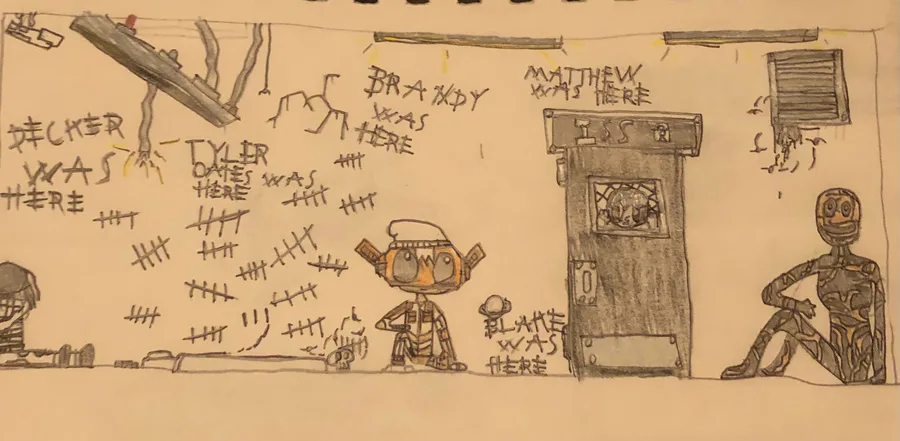 DECKER
WAS
HERE
TYLER
OATES WAS
HERE
BRANDY
WAS
HERE
MATTHEW
WAS HERE
BLAKE
WAS
HERE